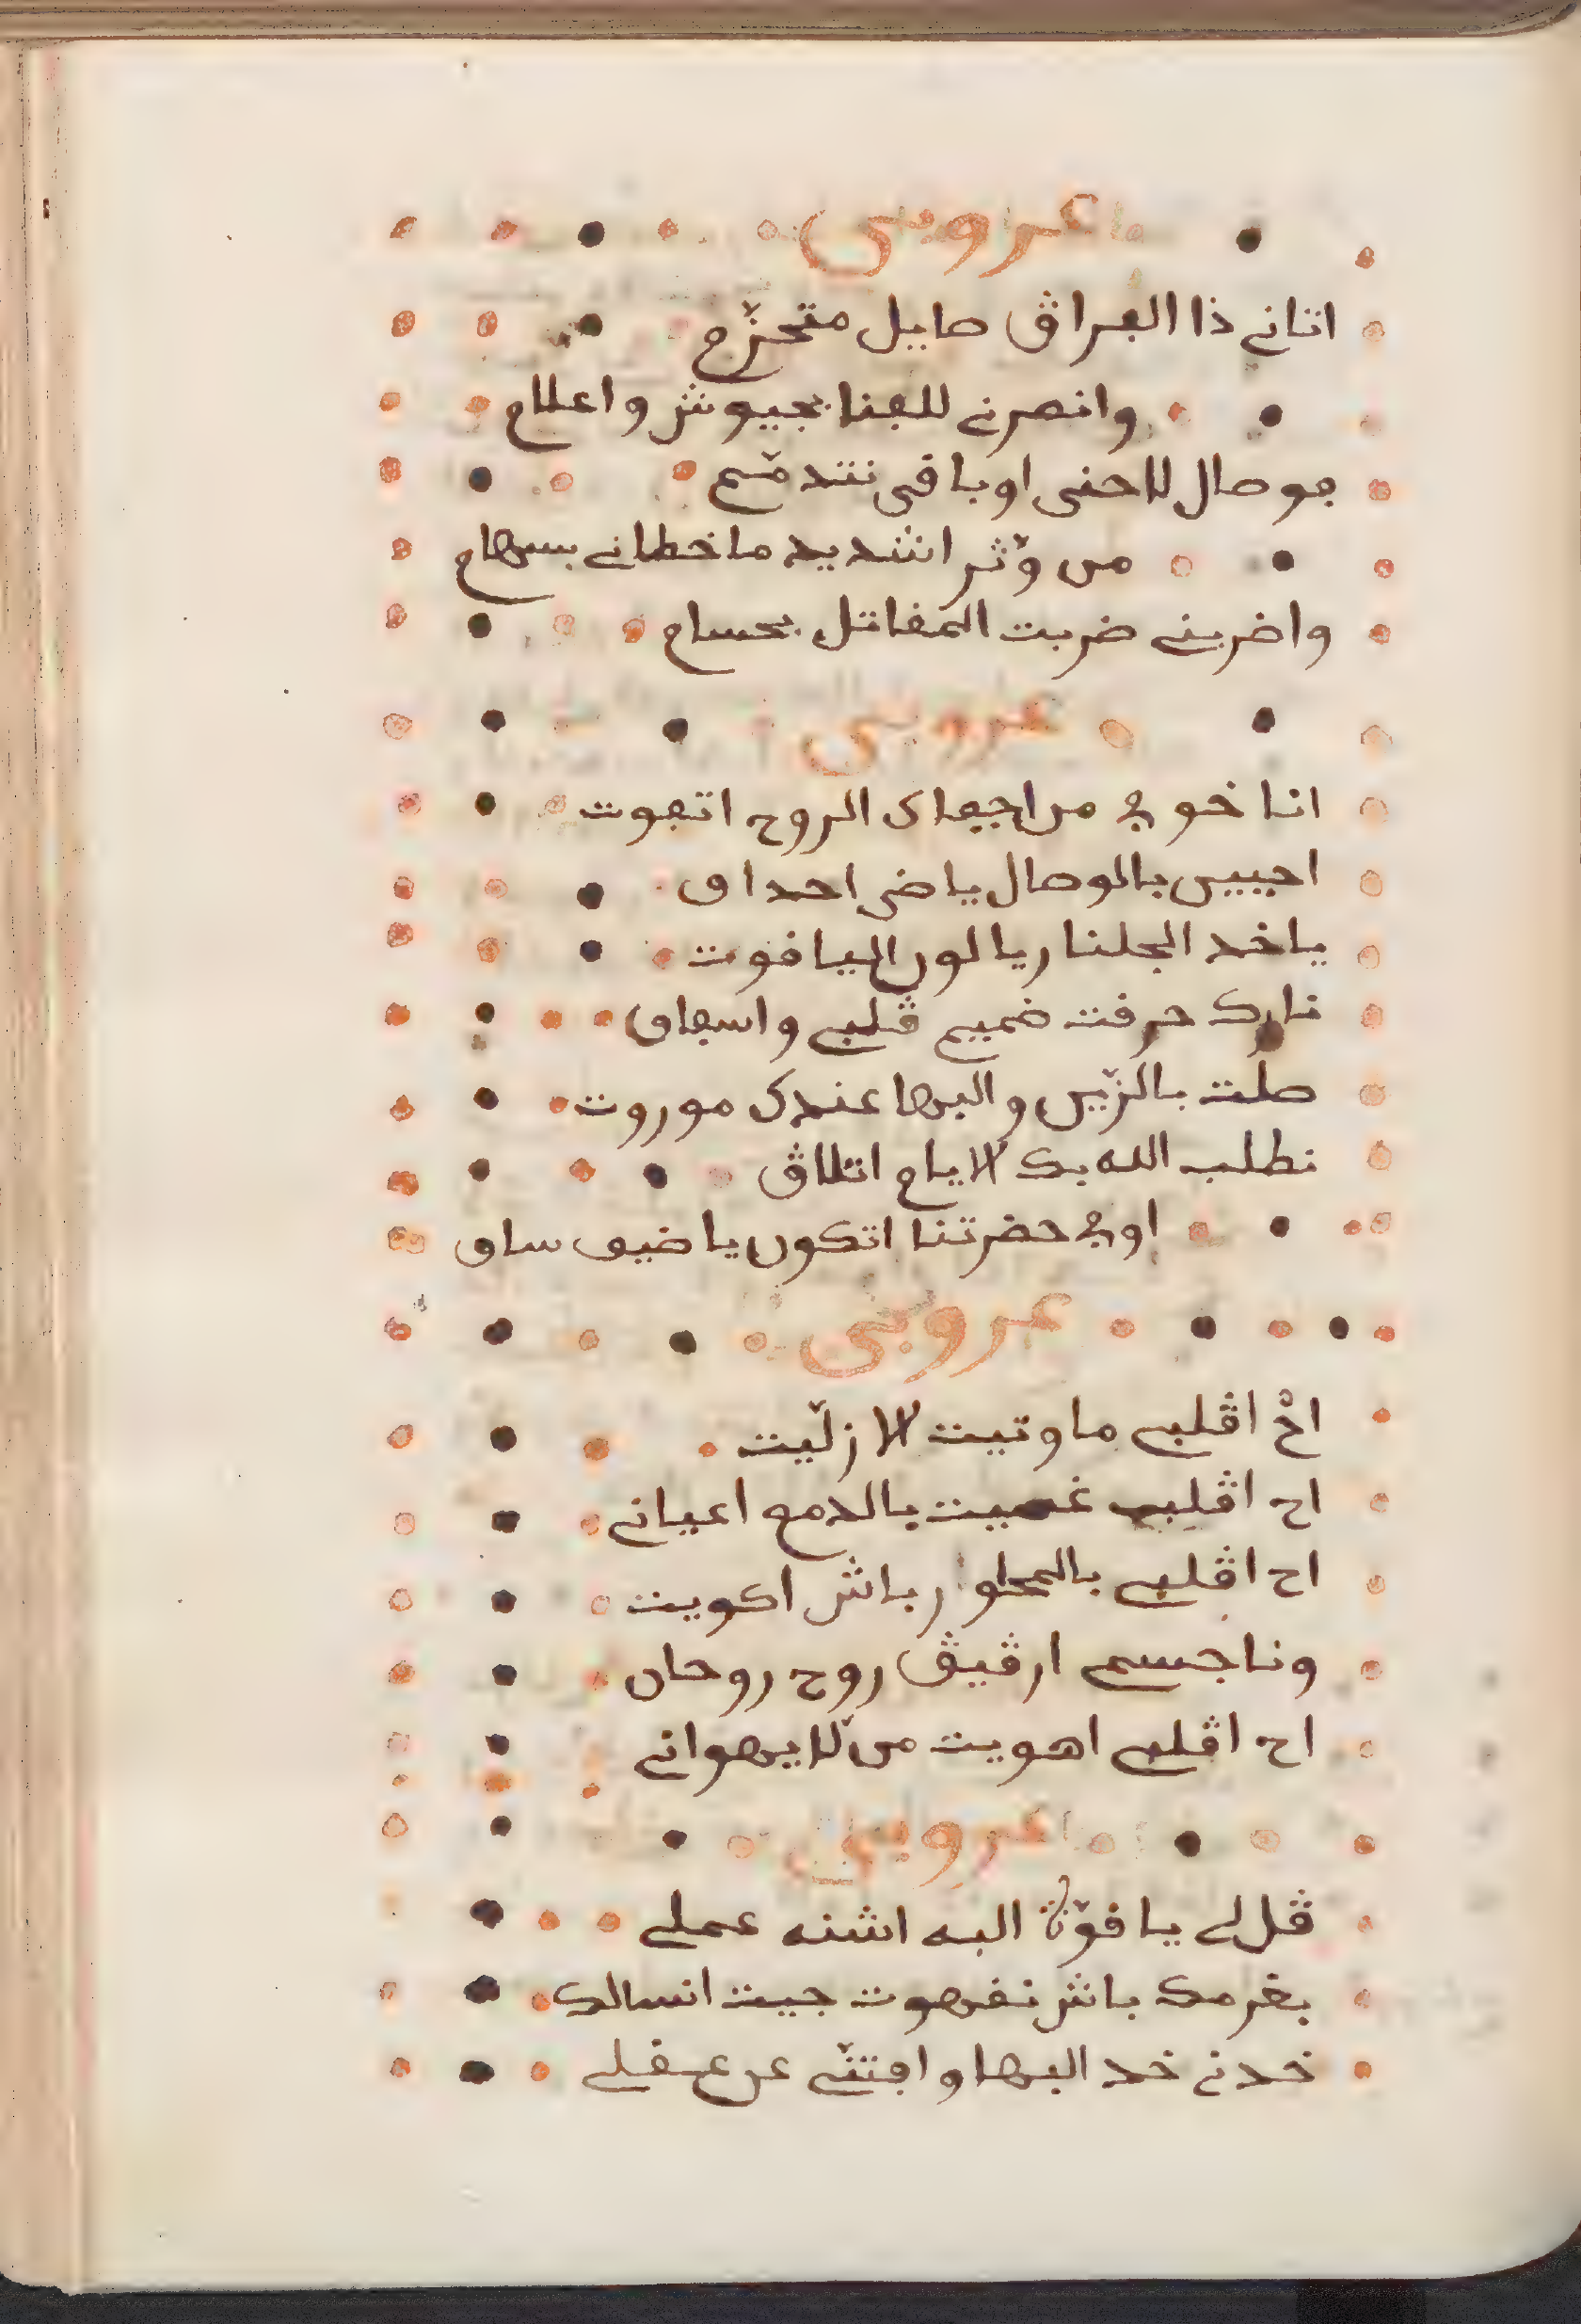 عروبي
اتاني ذا الفراڧ صايل متحزّم
وانصرني للفنا بجيوش واعلام
بوصال لاحنى اوباقى نتندمّ
من وٓتر اشديد ماخطاني بسهام
واضربني ضربت المقاتل بحسام
عروبي
انا خوفي من اجفاك الروح اتفوت
احييني بالوصال ياضي احداق
ياخد الجلنار يالون الياقوت
نارك حرقت ضميم ڤلبي واسعاق
صلت بالزّين والبها عندك موروت
نطلب الله بك الايام اتلاڤ
اوفي حضرتنا اتكون ياضيف ساق
عروبي
اح اڤلبي ماوتيت الا زلّيت
اح اڤلبي غميت بالدمع اعياني
اح اڤلبي بالمحاور باش اكويت
ونا جسمي ارڤيڤ روح روحان
اح اڤلبي اهويت من لا يهواني
عروبي
ڤل لي يا قوّة البه اشنه عملي
بغرمك باش نفهوت جيت انسالك
خدني خد البها وافتنّي عن عقلي